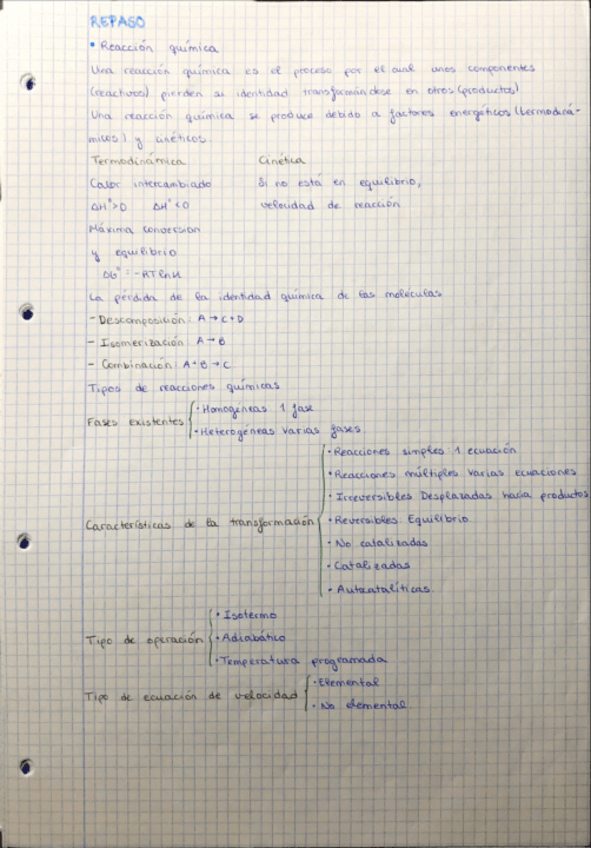 REPASO
• Reacción química
Una reacción química es el proceso por el cual unos componentes
(reactivos) pierden su identidad transformándose en otros (productos)
Una reacción química se produce debido a factores energéticos (termodiná-
micos) y cinéticos.
Termodinámica Cinética
Calor intercambiado Si no está en equilibrio,
ΔH°>0 ΔH°<0 velocidad de reacción
Máxima conversión
y equilibrio
ΔG°=-RTlnK
La pérdida de la identidad química de las moléculas
- Descomposición: A → C+D
- Isomerización: A → B
- Combinación: A+B → C
Tipos de reacciones químicas
Fases existentes
• Homogéneas 1 fase
• Heterogéneas Varias fases
Características de la transformación
• Reacciones simples 1 ecuación
• Reacciones múltiples Varias ecuaciones
• Irreversibles Desplazadas hacia productos
• Reversibles Equilibrio
• No catalizadas
• Catalizadas
• Autocatalíticas.
Tipo de operación
• Isotermo
• Adiabático
• Temperatura programada
Tipo de ecuación de velocidad
• Elemental
• No elemental